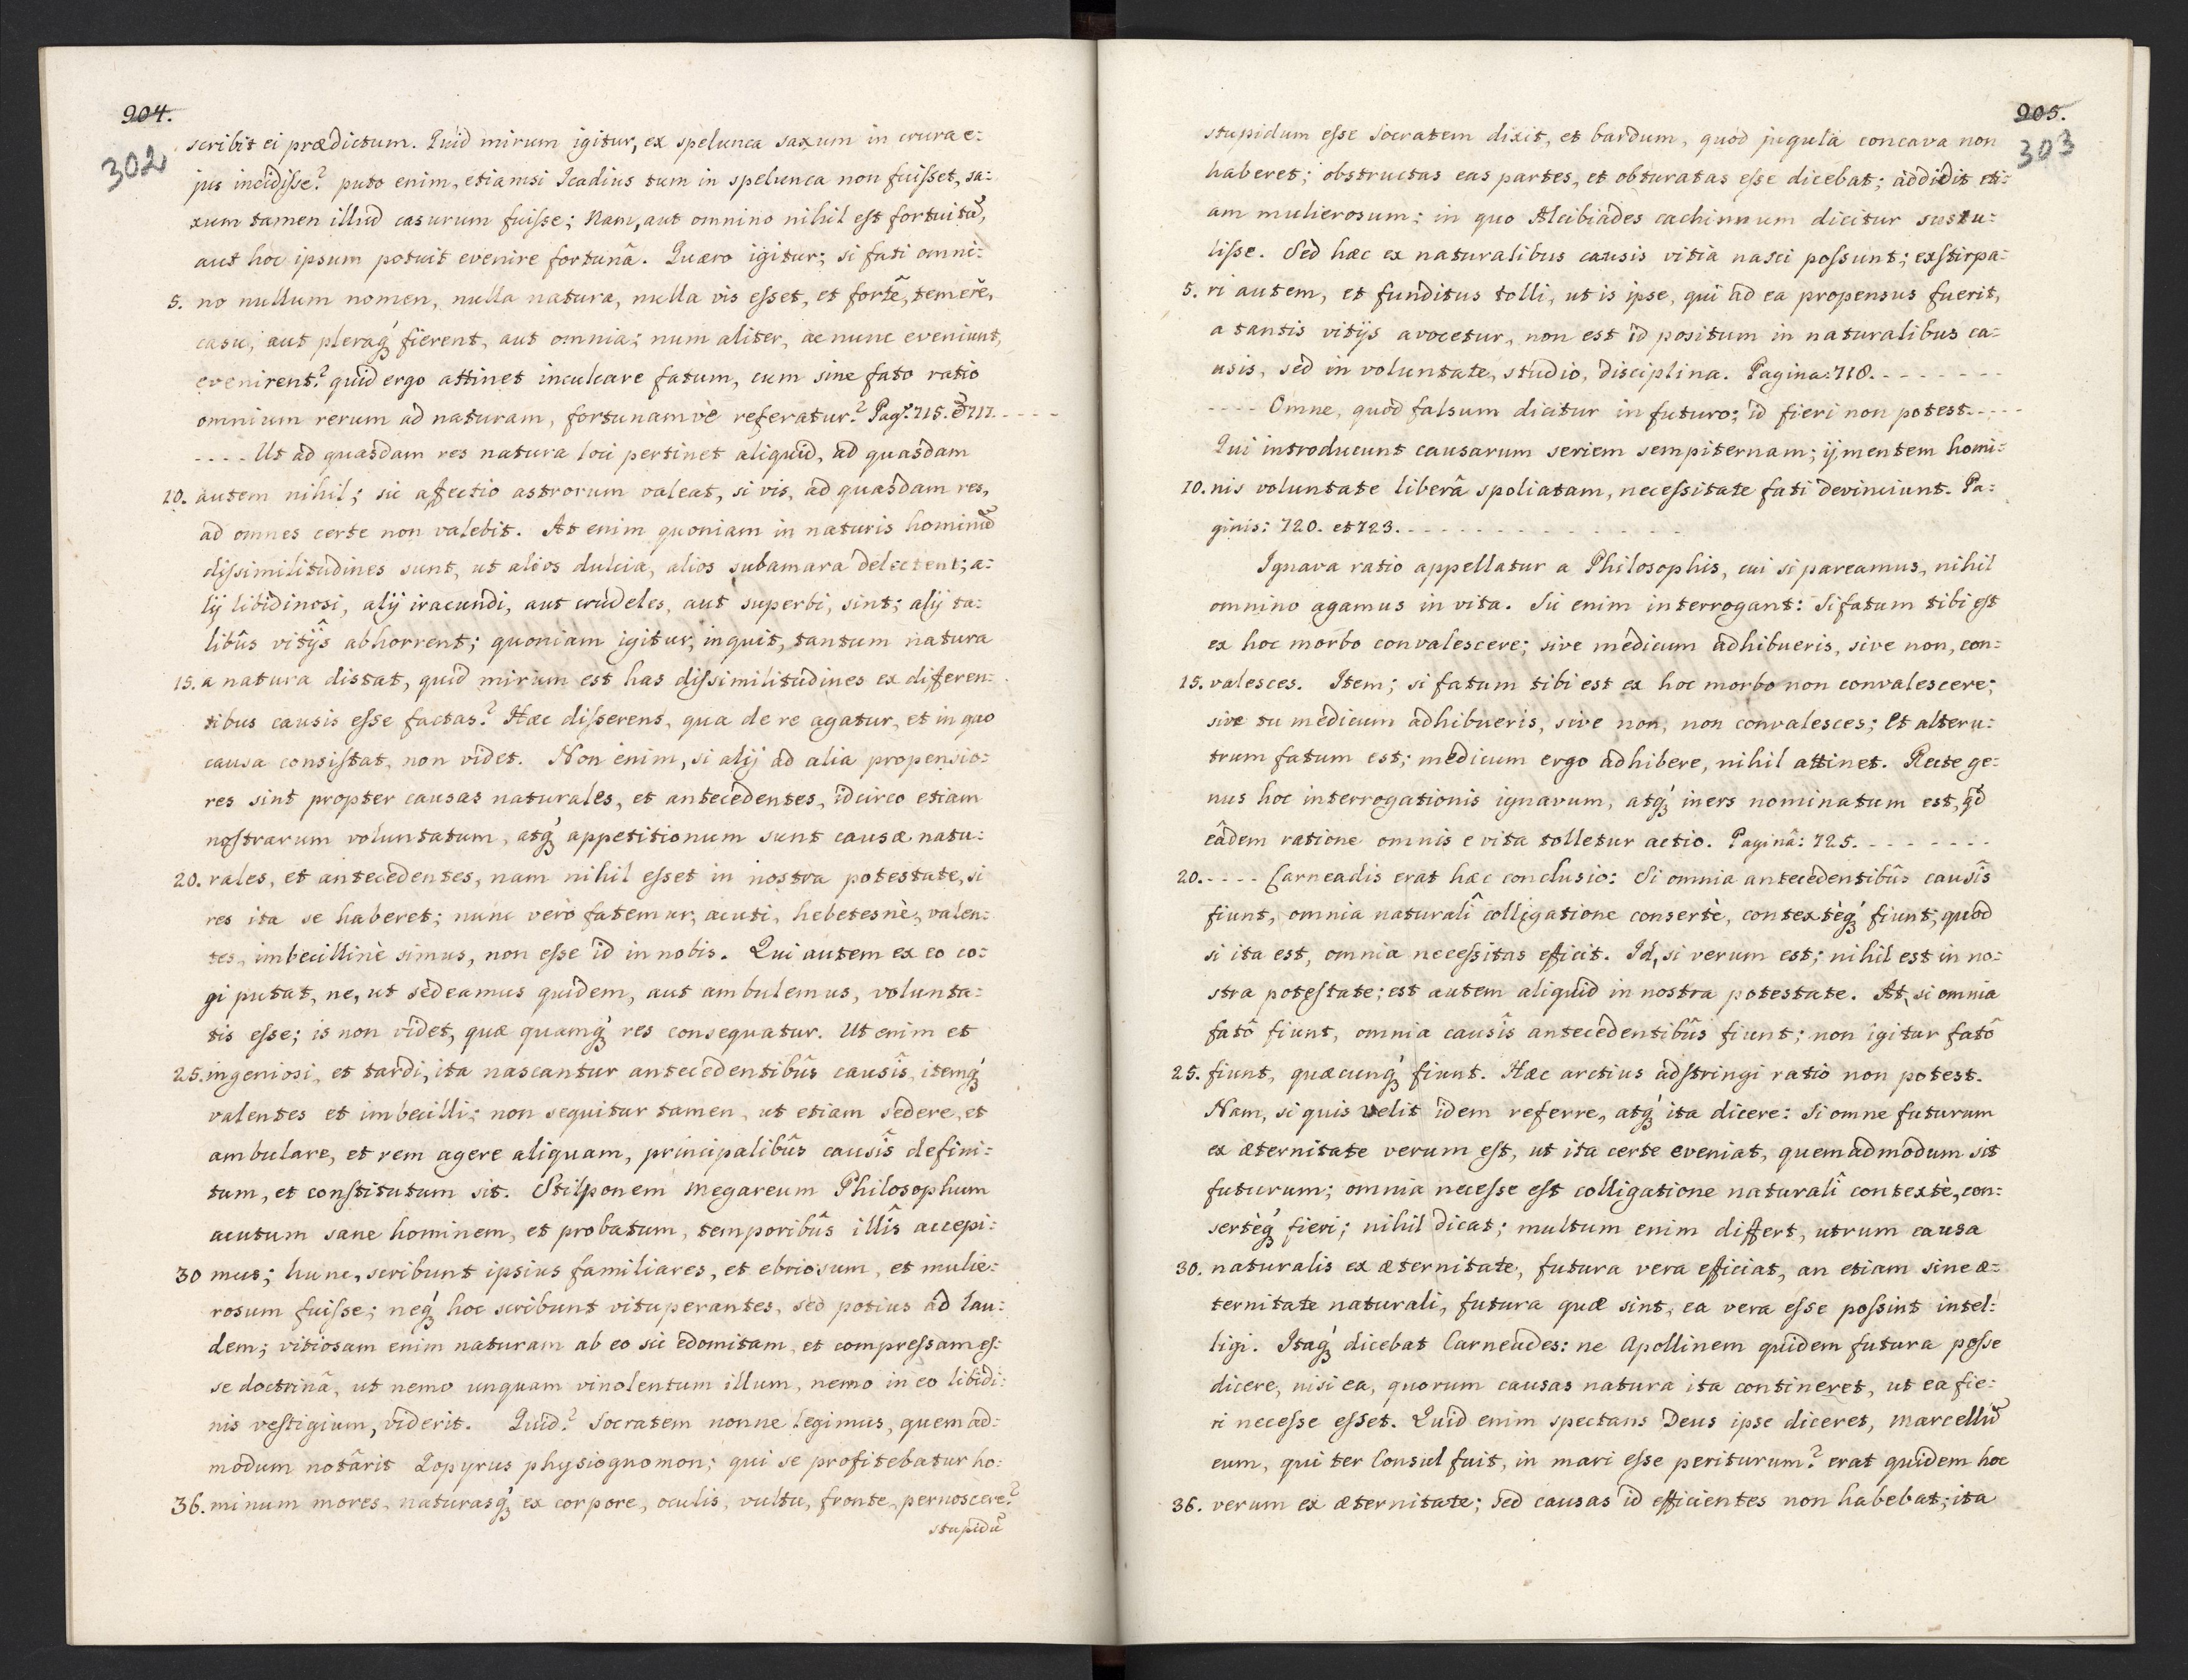 904.
302
scribit ei prædictum. Quid mirum igitur, ex spelunca saxum in crura e:
jus incidisse? puto enim, etiamsi Icadius tum in spelunca non fuisset, sa:
xum tamen illud casurum fuisse; Nam, aut omnino nihil est fortuitũ,
aut hoc ipsum potuit evenire fortunâ. Quæro igitur; si fati omni:
5. no nullum nomen, nulla natura, nulla vis esset, et forte, temere,
casu, aut pleraq́ fierent, aut omnia; num aliter, ac nunc eveniunt,
evenirent? quid ergo attinet inculcare fatum, cum sine fato ratio
omnium rerum ad naturam, fortunamvè referatur? Pag: 715. & 717. - - - -
- - - - Ut ad quasdam res natura loci pertinet aliquid, ad quasdam
10. autem nihil; sic affectio astrorum valeat, si vis, ad quasdam res,
ad omnes certe non valebit. At enim quoniam in naturis hominũ
dissimilitudines sunt, ut alios dulcia, alios subamara delectent; a:
lij libidinosi, alij iracundi, aut crudeles, aut superbi, sint; alij ta:
libûs vitijs abhorrent; quoniam igitur, inquit, tantum natura
15. a natura distat, quid mirum est has dissimilitudines ex differen:
tibus causis esse factas? Hæc disserens, qua de re agatur, et in quo
causa consistat, non videt. Non enim, si alij ad alia propensio:
res sint propter causas naturales, et antecedentes, idcirco etiam
nostrarum voluntatum, atq́ appetitionum sunt causæ natu:
20. rales, et antecedentes, nam nihil esset in nostra potestate, si
res ita se haberet; nunc verò fatemur, acuti, hebetesnè, valen:
tes, imbecillinè simus, non esse id in nobis. Qui autem ex eo co:
gi putat, ne, ut sedeamus quidem, aut ambulemus, volunta:
tis esse; is non videt, quæ quamq́ res consequatur. Ut enim et
25. ingeniosi, et tardi, ita nascantur antecedentibûs causîs, itemq́
valentes et imbecilli; non sequitur tamen, ut etiam sedere, et
ambulare, et rem agere aliquam, principalibûs causîs defini:
tum, et constitutum sit. Stilponem Megareum Philosophum
acutum sane hominem, et probatum, temporibûs illîs accepi:
30 mus; hunc, scribunt ipsius familiares, et ebriosum, et mulie:
rosum fuisse; neq́ hoc scribunt vituperantes, sed potius ad lau:
dem; vitiosam enim naturam ab eo sic edomitam, et compressam es:
se doctrinâ, ut nemo unquam vinolentum illum, nemo in eo libidi:
nis vestigium, viderit. Quid? Socratem nonne legimus, quemad:
modum notârit Zopyrus physiognomon; qui se profitebatur ho:
36. minum mores, naturasq́ ex corpore, oculis, vultu, fronte, pernoscere?
stupidũ
905.
303
stupidum esse Socratem dixit, et bardum, quod jugula concava non
haberet; obstructas eas partes, et obturatas esse dicebat; addidit eti:
am mulierosum; in quo Alcibiades cachinnum dicitur sustu:
lisse. Sed hæc ex naturalibus causis vitia nasci possunt; exstirpa:
5. ri autem, et funditus tolli, ut is ipse, qui ad ea propensus fuerit,
a tantis vitijs avocetur, non est id positum in naturalibus ca:
usis, sed in voluntate, studio, disciplina. Pagina: 718. - - - - - - -
- - - - Omne, quod falsum dicitur in futuro; id fieri non potest. - - - -
Qui introducunt causarum seriem sempiternam; ij mentem homi:
10. nis voluntate liberâ spoliatam, necessitate fati devinciunt. Pa:
ginis: 720. et 723. - - - - - - - - - - - -
Ignava ratio appellatur a Philosophis, cui si pareamus, nihil
omnino agamus in vita. Sic enim interrogant: Si fatum tibi est
ex hoc morbo convalescere; sive medicum adhibueris, sive non, con:
15. valesces. Item; si fatum tibi est ex hoc morbo non convalescere;
sive tu medicum adhibueris, sive non, non convalesces; et alteru:
trum fatum est; medicum ergo adhibere, nihil attinet. Recte ge:
nus hoc interrogationis ignavum, atq́ iners nominatum est, qd
eâdem ratione omnis e vita tolletur actio. Paginâ: 725. - - - - - - -
20. - - - - Carneadis erat hæc conclusio: Si omnia antecedentibûs causîs
fiunt, omnia naturalî colligatione consertè, contextèq́ fiunt; quod
si ita est, omnia necessitas efficit. Id, si verum est; nihil est in no:
stra potestate; est autem aliquid in nostra potestate. At, si omnia
fatô fiunt, omnia causîs antecedentibûs fiunt; non igitur fatô
25. fiunt, quæcunq́ fiunt. Hæc arctius adstringi ratio non potest.
Nam, si quis velit idem referre, atq́ ita dicere: Si omne futurum
ex æternitate verum est, ut ita certe eveniat, quemadmodum sit
futurum; omnia necesse est colligatione naturalî contextè, con:
sertèq́ fieri; nihil dicat; multum enim differt, utrum causa
30. naturalis ex æternitate, futura vera efficiat, an etiam sine æ:
ternitate naturali, futura quæ sint, ea vera esse possint intel:
ligi. Itaq́ dicebat Carneades: ne Apollinem quidem futura posse
dicere, nisi ea, quorum causas natura ita contineret, ut ea fie:
ri necesse esset. Quid enim spectans Deus ipse diceret, Marcellũ
eum, qui ter Consul fuit, in mari esse periturum? erat quidem hoc
36. verum ex æternitate; sed causas id efficientes non habebat; ita